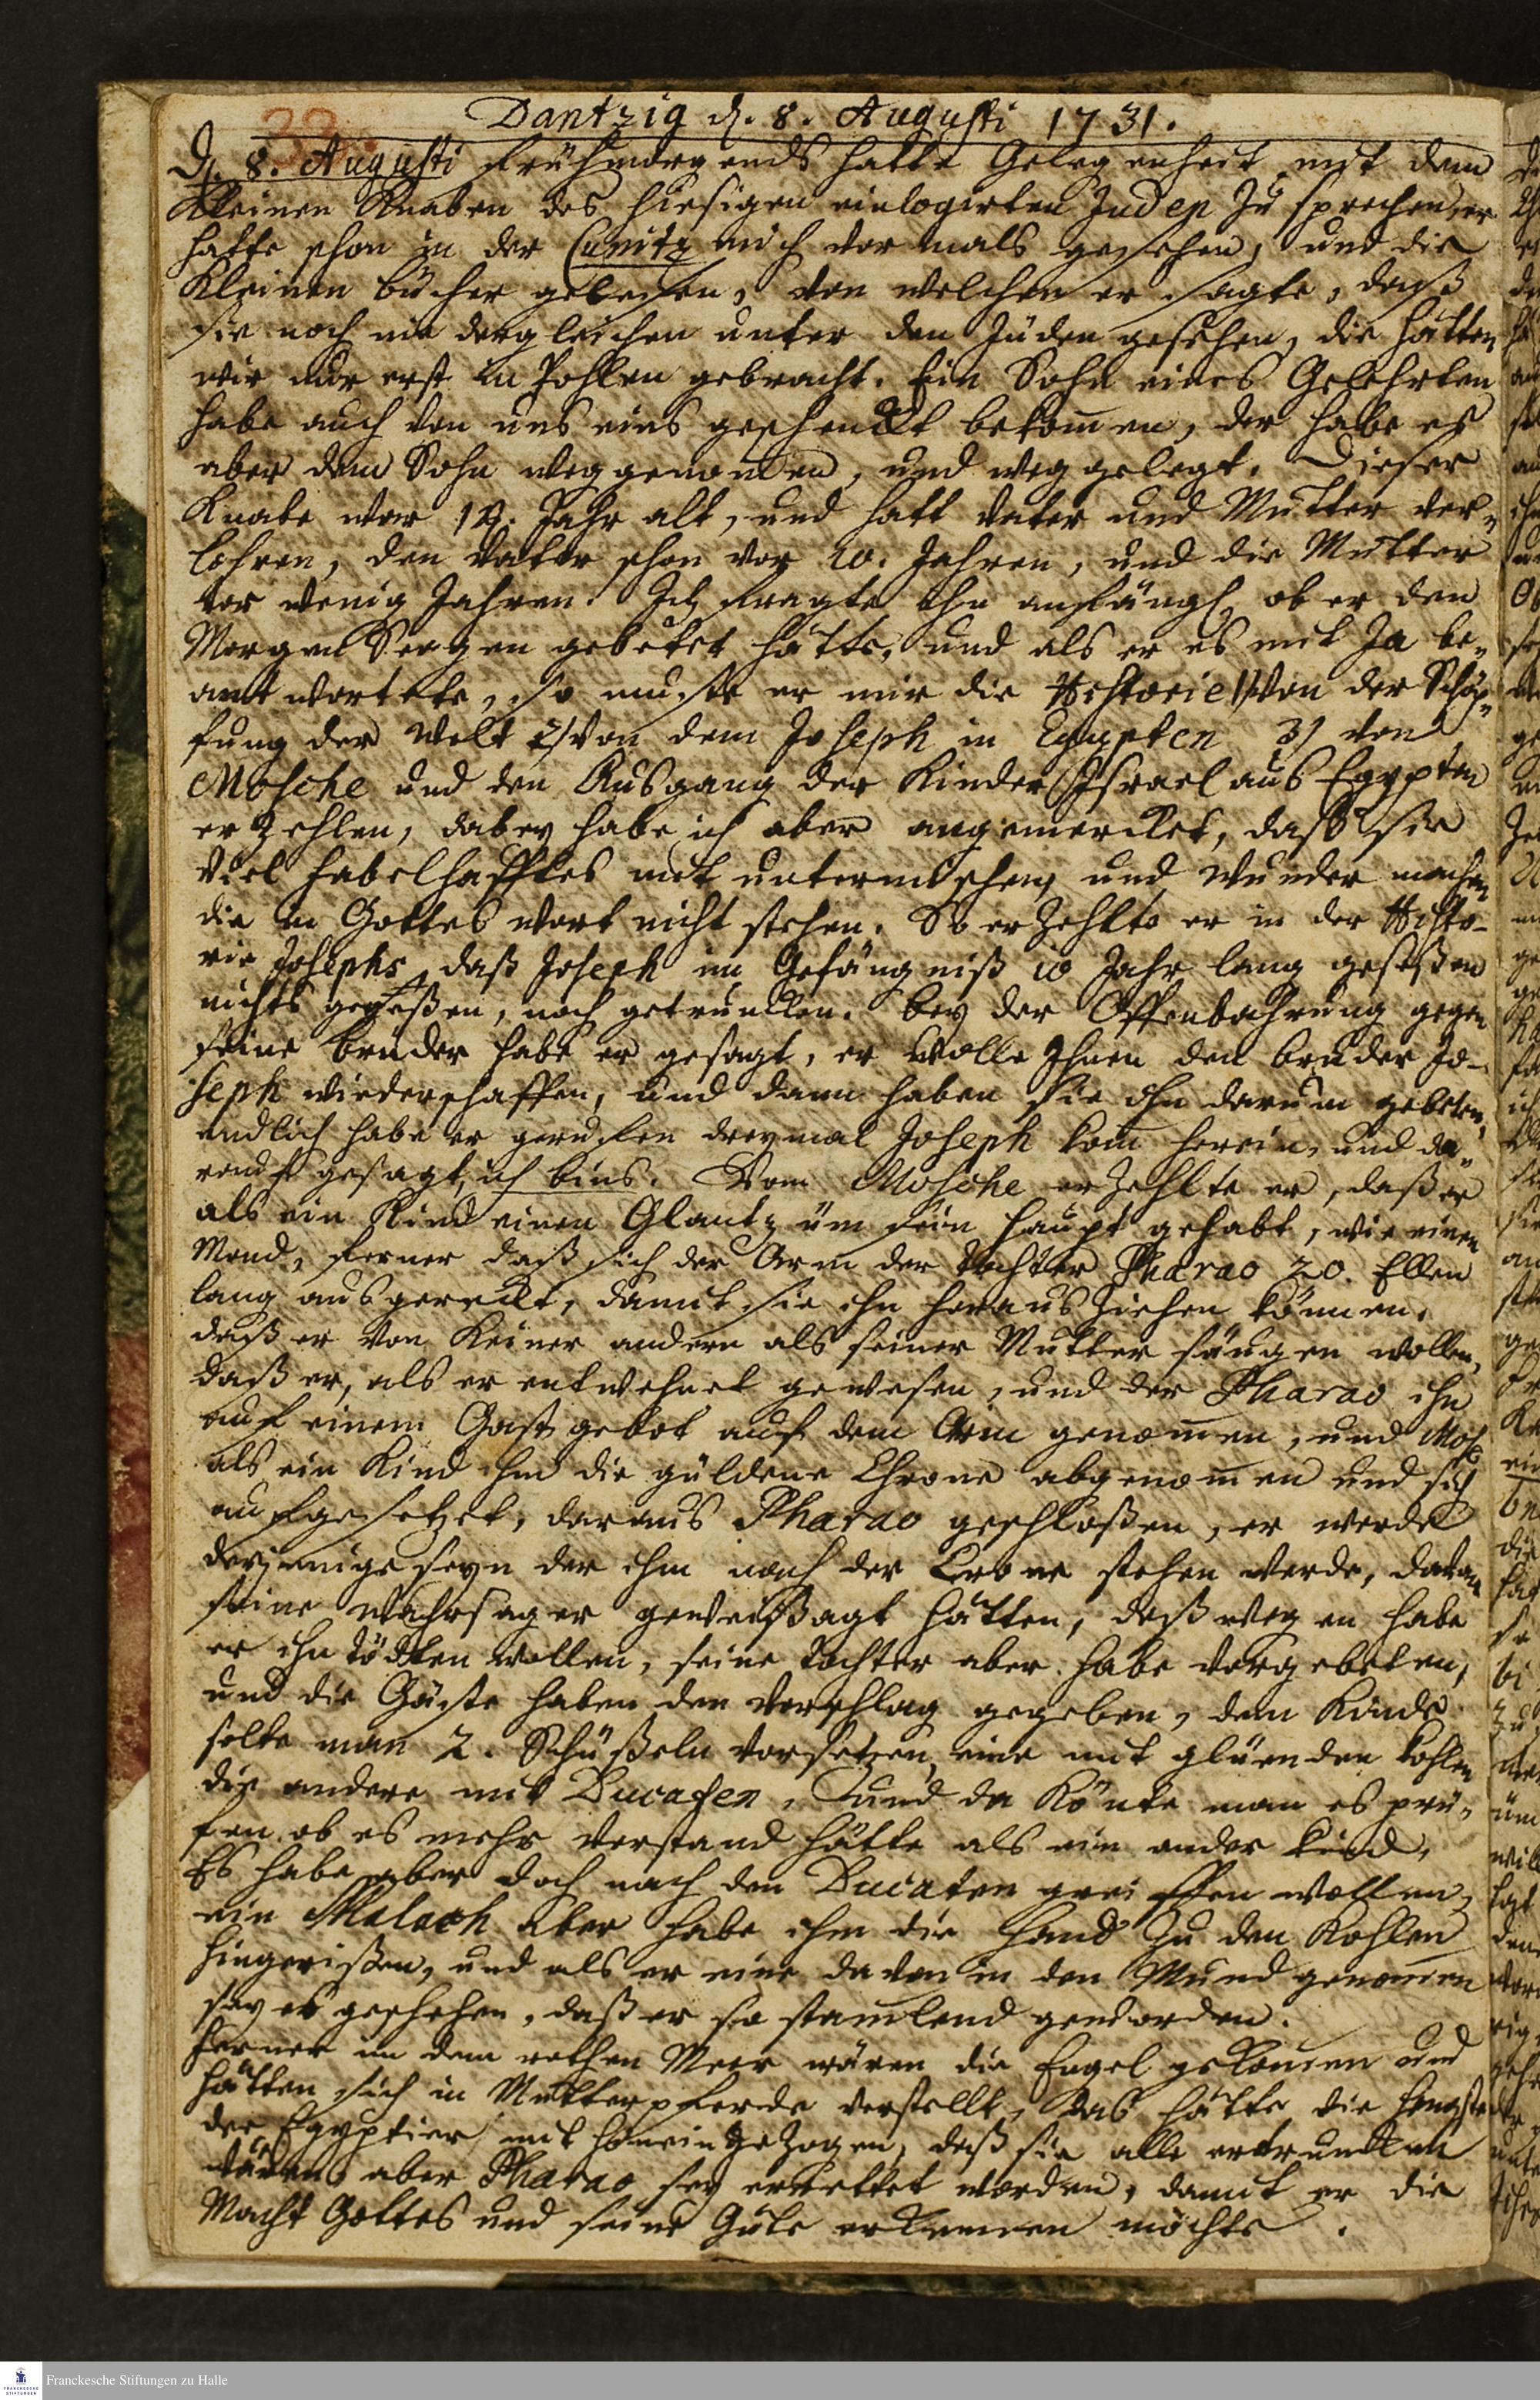 33.
Dantzig d. 8. Augusti 1731.
D. 8. Augusti frühmorgends hatte Gelegenheit mit dem
kleinen Knaben des hiesigen einlogirten Juden zu sprechen, er
hatte schon in der Cunitz mich vormals gesehen, und die
kleinen bücher gelesen, von welchen er sagte, daß
sie noch nie dergleichen unter den Juden gesehen, die hätten
wir nur erst in Pohlen gebracht. Ein Sohn eines Gelehrten
habe auch von uns eins geschenckt bekom̄en, der habe es
aber dem Sohn weggenom̄en, und weg gelegt. Dieser
Knabe war Jahr alt, und hatt Vater und Mutter ver-
lohren, den Vater schon vor 10. Jahren, und die Mutter
vor wenig Jahren. Ich fragte ihn anfängl. ob er den
Morgen Seegen gebetet hätte, und als er es mit Ja be-
antwortete, so muste er mir die Historie 1) von der Schöp-
fung der Welt 2) von dem Joseph in Egypten 3) von
Mosche und den Ausgang der Kinder Israel aus Egypten
erzehlen, dabey habe ich aber angemercket, daß sie
viel fabelhafftes mit untermischen und Wunder machen
die in Gottes Wort nicht stehen. So erzehlte er in der Histo-
rie Josephs, daß Joseph im Gefängniß 10 Jahr lang geseßen
nichts gegeßen, noch getruncken. bey der Offenbahrung gegen
seine bruder habe er gesagt, er wolle Ihnen den bruder Jo-
seph wiederschaffen, und dann haben sie ihn darum gebeten,
endlich habe er geruffen dreymal Joseph kom̄ herein, und da-
rauf gesagt, ich bins. Vom Mosche erzehlte er, daß er
als ein Kind einen Glantz üm sein Haupt gehabt, wie einen
Mond, ferner daß sich der Arm der Tochter Pharao 20. Ellen
lang ausgereckt, damit sie ihn heraus ziehen können,
daß er von keiner andern als seiner Mutter säugen wollen,
daß er, als er entwehnet gewesen, und der Pharao ihn
auf einem Gastgebot auf dem Arm genom̄en, und Mose
als ein Kind ihm die güldene Chrone abgenom̄en und sich
aufgesetzet, daraus Pharao geschloßen, er werde
derjenige seyn der ihm nach der Crone stehen werde, davon
seine Wahrsager geweissagt hätten, deßwegen habe
er ihn tödten wollen, seine Tochter aber habe vorgebeten,
und die Gäste haben den Vorschlag gegeben, dem Kinde
solte man 2. Schüßeln vorsetzen, eine mit glüenden Kohlen
die andere mit Ducaten, und da könte man es prü-
fen ob es mehr Verstand hätte als ein ander Kind,
Es habe aber doch nach den Ducaten greiffen wollen,
ein Malach aber habe ihm die Hand zu den Kohlen
hingerißen, und als er eine davon in den Mund genom̄en
sey es geschehen, daß er so stam̄lend geworden.
Ferner in dem rothen Meer wären die Engel gekom̄en und
hätten sich in Mutterpferde verstellt, das hätte die Hengste
der Egyptier mit hinein gezogen, daß sie alle ertruncken
wären, aber Pharao sey errettet worden, damit er die
Macht Gottes und seine Güte erkennen möchte.
Franckesche Stiftungen zu Halle